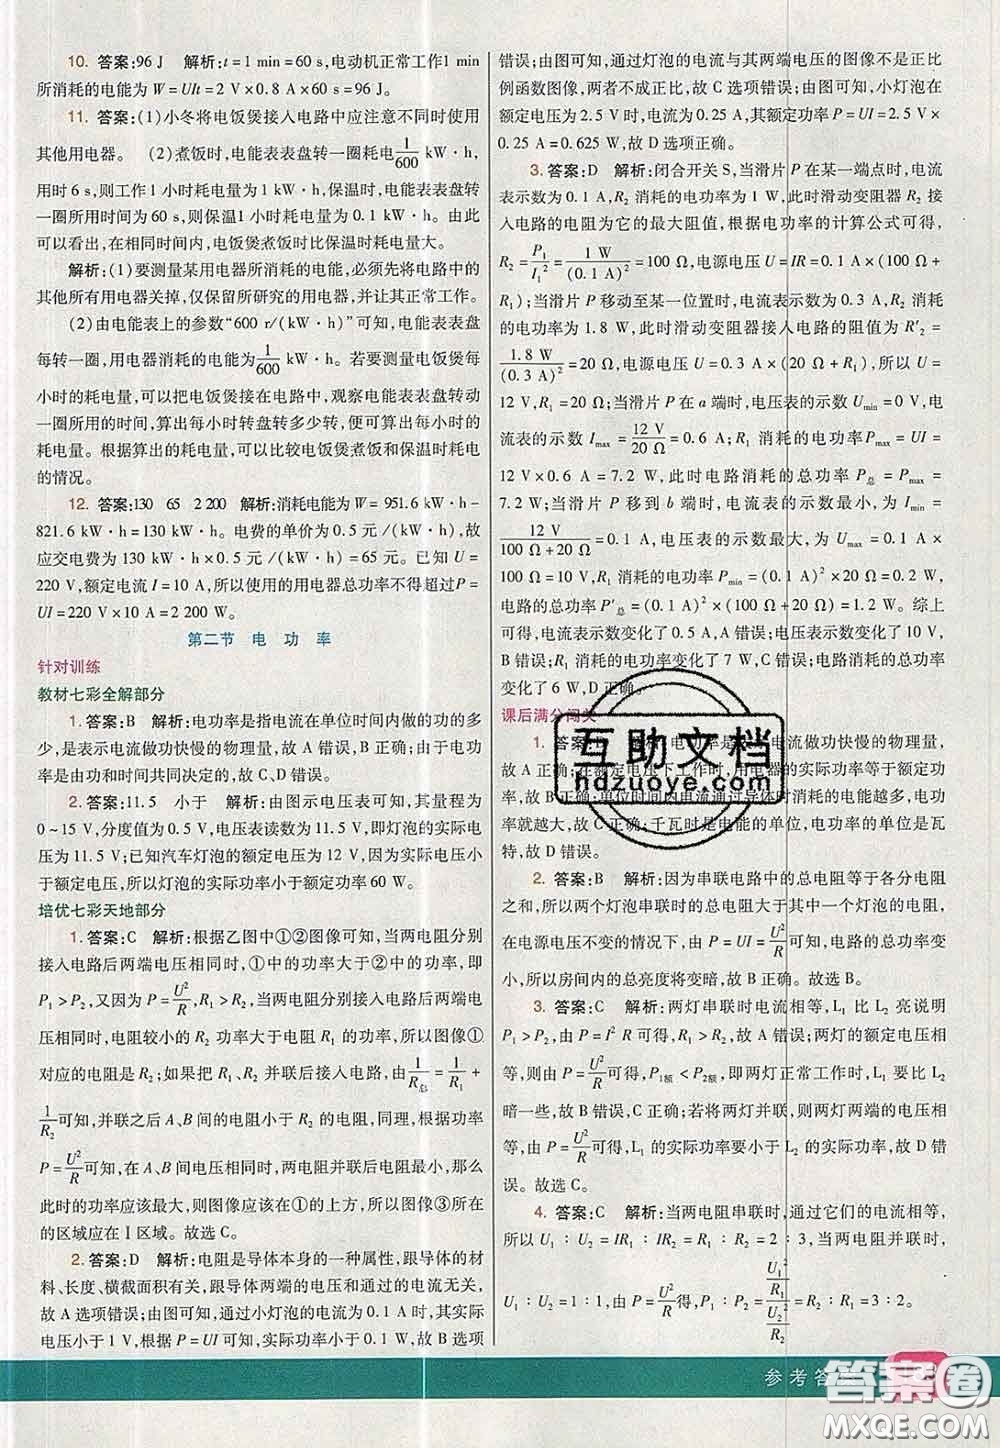 10. 答案:96 J　解析:t=1 min=60 s,电动机正常工作1 min
所消耗的电能为 W=UIt=2 V×0.8 A×60 s=96 J。
11. 答案:(1)小冬将电饭煲接入电路中应注意不同时使用
其他用电器。　(2)煮饭时,电能表表盘转一圈耗电 1/600 kW·h,
用时 6 s,则工作1小时耗电量为1 kW·h;保温时,电能表表盘转
一圈所用时间为 60 s,则保温1小时耗电量为 0.1 kW·h。由此
可以看出,在相同时间内,电饭煲煮饭时比保温时耗电量大。
解析:(1)要测量某用电器所消耗的电能,必须先将电路中的
其他所有用电器关掉,仅保留所研究的用电器,并让其正常工作。
(2)由电能表上的参数“600 r/(kW·h)”可知,电能表表盘
每转一圈,用电器消耗的电能为 1/600 kW·h。若要测量电饭煲每
小时的耗电量,可以把电饭煲接在电路中,观察电能表表盘转动
一圈所用的时间,算出每小时转盘转多少转,便可算出每小时的
耗电量。根据算出的耗电量,可以比较电饭煲煮饭和保温时耗电
的情况。
12. 答案:130　65　2 200　解析:消耗电能为 W=951.6 kW·h-
821.6 kW·h=130 kW·h。电费的单价为0.5 元/(kW·h),故
应交电费为 130 kW·h×0.5 元/(kW·h)=65 元。已知 U=
220 V,额定电流 I=10 A,所以使用的用电器总功率不得超过P=
UI=220 V×10 A=2 200 W。
第二节　电　功　率
针对训练
教材七彩全解部分
1. 答案:B　解析:电功率是指电流在单位时间内做的功的多
少,是表示电流做功快慢的物理量,故 A 错误,B 正确;由于电功
率是由功和时间共同决定的,故C、D 错误。
2. 答案:11.5　小于　解析:由图示电压表可知,其量程为
0~15 V,分度值为0.5 V,电压表读数为11.5 V,即灯泡的实际电
压为 11.5 V;已知汽车灯泡的额定电压为 12 V,因为实际电压小
于额定电压,所以灯泡的实际功率小于额定功率 60 W。
培优七彩天地部分
1. 答案:C　解析:根据乙图中①②图像可知,当两电阻分别
接入电路后两端电压相同时,①中的功率大于②中的功率,即
P₁>P₂,又因为 P=U²/R,R₁>R₂,当两电阻分别接入电路后两端电
压相同时,电阻较小的 R₂ 功率大于电阻 R₁ 的功率,所以图像①
对应的电阻是 R₂;如果把 R₁、R₂ 并联后接入电路,由 1/R总=1/R₁+
1/R₂ 可知,并联之后 A、B 间的电阻小于 R₂ 的电阻,同理,根据
P=U²/R 可知,在 A、B 间电压相同时,因两电阻并联后电阻最小,那么
此时的功率应该最大,则图像应该在①的上方,所以图像③所在
的区域应在Ⅰ区域。故选 C。
2. 答案:D　解析:电阻是导体本身的一种属性,跟导体的材
料、长度、横截面积有关,跟导体两端的电压和通过的电流无关,
故 A 选项错误;由图可知,通过小灯泡的电流为 0.1 A时,其实际
电压小于1 V,根据 P=UI 可知,实际功率小于0.1 W,故 B 选项
错误;由图可知,通过灯泡的电流与其两端电压的图像不是正比
例函数图像,两者不成正比,故 C 选项错误;由图可知,小灯泡在
额定电压为 2.5 V时,电流为 0.25 A,其额定功率 P=UI=2.5 V×
0.25 A=0.625 W,故 D 选项正确。
3. 答案:D　解析:闭合开关 S,当滑片 P 在某一端点时,电流
表示数为0.1 A,R₂ 消耗的电功率为1 W,此时滑动变阻器 R₂ 接
入电路的电阻为它的最大阻值,根据电功率的计算公式可得,
R₂=P₁/I₁²=1 W/(0.1 A)²=100 Ω,电源电压 U=IR=0.1 A×(100 Ω+
R₁);当滑片 P 移动至某一位置时,电流表示数为 0.3 A,R₂ 消耗
的电功率为 1.8 W,此时滑动变阻器接入电路的阻值为 R′₂=
1.8 W/(0.3 A)²=20 Ω,电源电压 U=0.3 A×(20 Ω+R₁),所以 U=
12 V,R₁=20 Ω;当滑片 P 在 a 端时,电压表的示数 Umin=0 V,电
流表的示数 Imax=12 V/20 Ω=0.6 A;R₁ 消耗的电功率 Pmax=UI=
12 V×0.6 A=7.2 W,此时电路消耗的总功率 P总=Pmax=
7.2 W;当滑片 P 移到 b 端时,电流表的示数最小,为 Imin=
12 V/(100 Ω+20 Ω)=0.1 A,电压表的示数最大,为 Umax=0.1 A×
100 Ω=10 V,R₁ 消耗的电功率 Pmin=(0.1 A)²×20 Ω=0.2 W,
电路的总功率 P′总=(0.1 A)²×(100 Ω+20 Ω)=1.2 W。综上
可得,电流表示数变化了0.5 A,A 错误;电压表示数变化了10 V,
B 错误;R₁ 消耗的电功率变化了 7 W,C 错误;电路的总功率变化
了 6 W,D 正确。
课后满分闯关
1. 答案:D　解析:电功率是表示电流做功快慢的物理量,
故 A 正确;在额定电压下工作时,用电器的实际功率等于额定功
率,故 B 正确;单位时间内电流通过导体时消耗的电能越多,电功
率就越大,故 C 正确;千瓦时是电能的单位,电功率的单位是瓦
特,故 D 错误。
2. 答案:B　解析:因为串联电路中的总电阻等于各分电阻
之和,所以两个灯泡串联时的总电阻大于其中一个灯泡的电阻,
在电源电压不变的情况下,由 P=UI=U²/R 可知,电路的总功率变
小,所以房间内的总亮度将变暗,故 B 正确。故选 B。
3. 答案:C　解析:两灯串联时电流相等,L₁ 比 L₂ 亮说明
P₁>P₂,由 P=I²R 可得,R₁>R₂,故 A 错误;两灯的额定电压相
等,由 P=U²/R 可得,P1额<P2额,即两灯正常工作时,L₁ 要比 L₂
暗一些,故 B 错误;若将两灯并联,则两灯两端的电压相
等,由 P=U²/R 可得,L₁ 的实际功率要小于 L₂ 的实际功率,故 D 错
误。故选 C。
4. 答案:C　解析:当两电阻串联时,通过它们的电流相等,
所以 U₁∶U₂=IR₁∶IR₂=R₁∶R₂=2∶3,当两电阻并联时,
U₁∶U₂=1∶1,由 P=U²/R 得,P₁/P₂=(U₁²/R₁)/(U₂²/R₂)=R₂∶R₁=3∶2。
互助文档
hdzuoye.com
参考答
答案圈
MXQE.COM